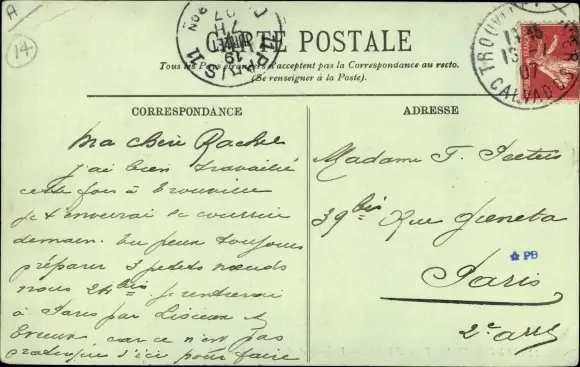 A
14
CARTE POSTALE
Tous les Pays étrangers n'acceptent pas la Correspondance au recto.
(Se renseigner à la Poste).
PARIS 11
TROUVILLE
13 07
CALVADOS
CORRESPONDANCE
Ma chère Rachel
j'ai bien travaillé
cette fois à Trouville
Je t'enverrai le courrier
demain. Tu peux toujours
préparer 3 petits nœuds
nous 24 bis. je rentrerai
à Paris par Lisieux et
Evreux, car ce n'est pas
pratique d'ici pour faire
ADRESSE
Madame T.
39 bis Rue Greneta
PB
Paris
2e arrt